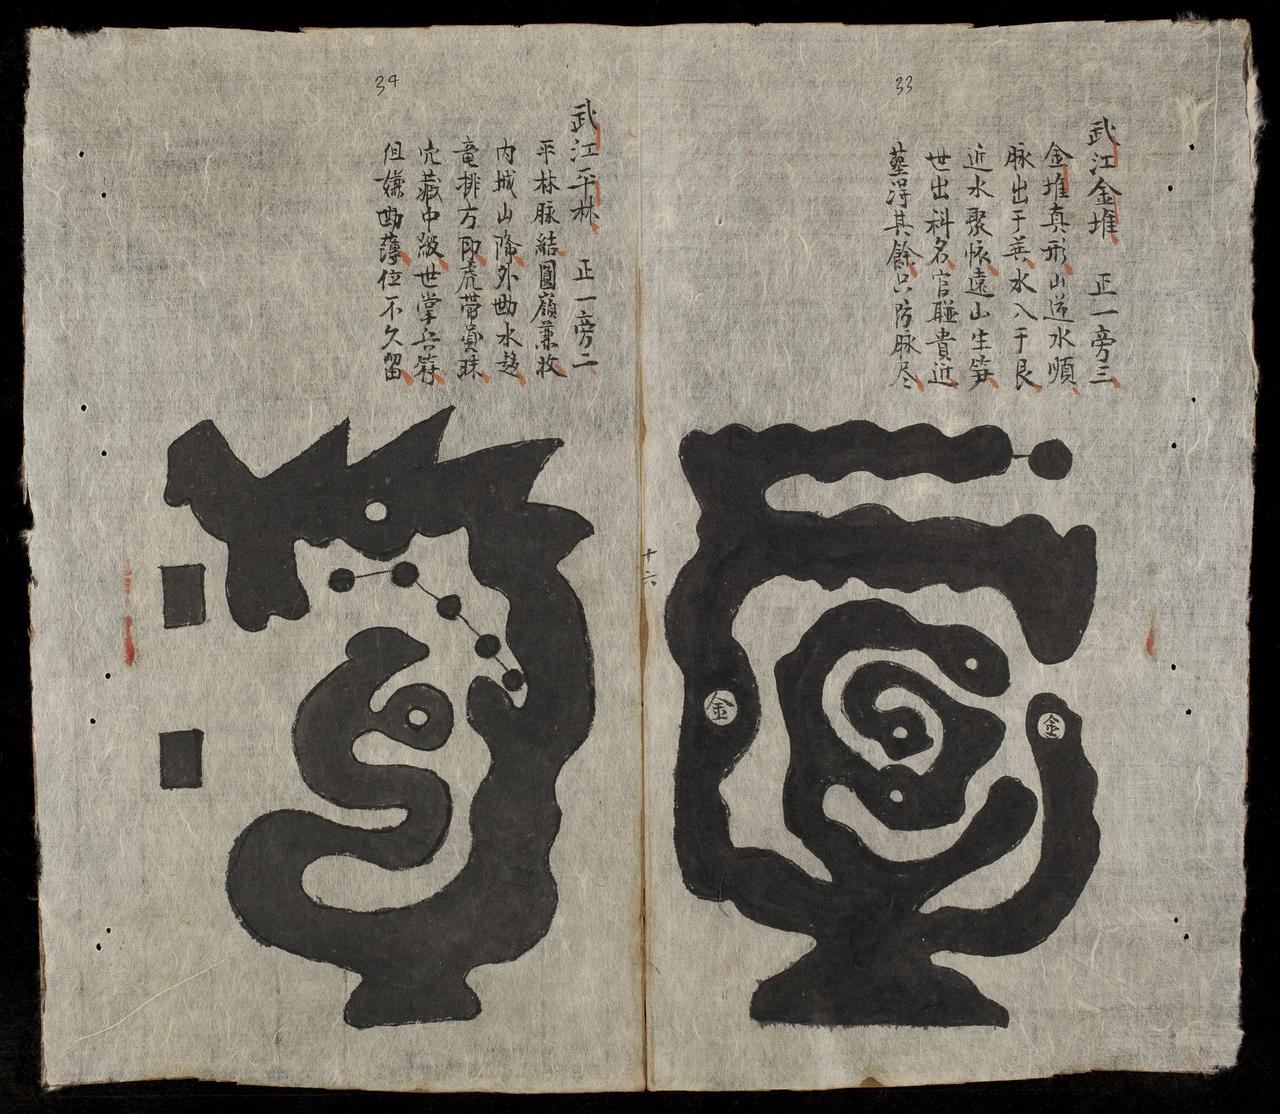 33
武江金堆 正一旁三
金堆真形山逆水順
脉出于巽水入于艮
近水聚怀遠山生笋
世出科名官聯貴近
塟得其餘只防脉尽
金
金
十六
34
武江平林 正一旁二
平林脉結圓嶺兼收
内城山降外㘭水趍
竜排方印虎帶員珠
穴藏中級世掌兵符
但嫌㘭薄位不久留